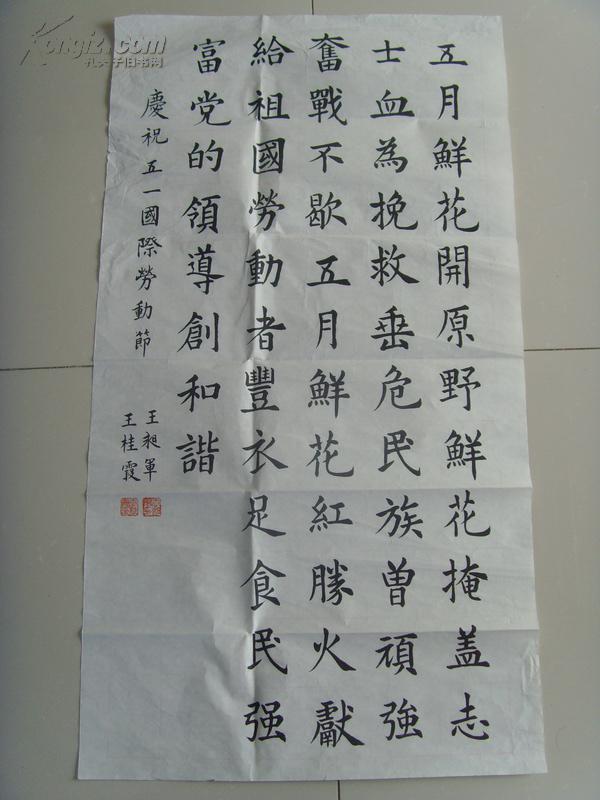 五月鮮花開原野鮮花掩盖志
士血為挽救垂危民族曾頑強
奮戰不歇五月鮮花紅勝火獻
給祖國勞動者豐衣足食民强
富党的領導創和諧
慶祝五一國際勞動節
王昶軍
王桂霞
Kongfz.com
孔夫子旧书网